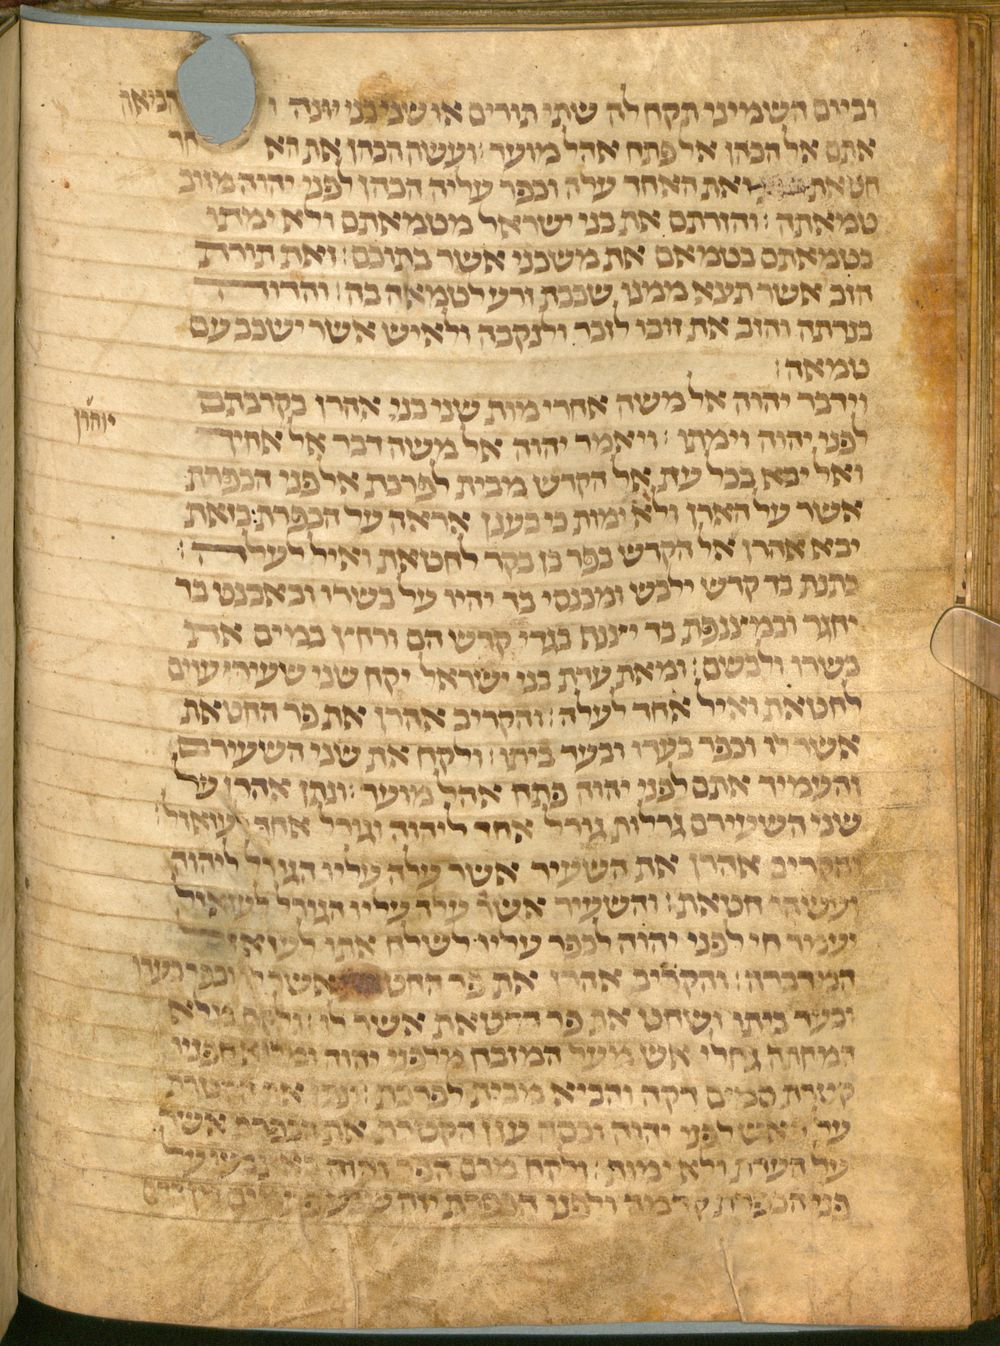 וביום השמיני תקח לה שתי תורים או שני בני יונה והביאה
אתם אל הכהן אל פתח אהל מועד : ועשה הכהן את הא חד
חטאת ואת האחד עלה וכפר עליה הכהן לפני יהוה מזוב
טמאתה : והזרתם את בני ישראל מטמאתם ולא ימתו
בטמאתם בטמאם את משכני אשר בתוכם : זאת תורת
הזב אשר תצא ממנו שכבת זרע לטמאה בה : והדוה
בנדתה והזב את זובו לזכר ולנקבה ולאיש אשר ישכב עם
טמאה :
וידבר יהוה אל משה אחרי מות שני בני אהרן בקרבתם
לפני יהוה וימתו : ויאמר יהוה אל משה דבר אל אחיך
ואל יבא בכל עת אל הקדש מבית לפרכת אל פני הכפרת
אשר על הארן ולא ימות כי בענן אראה על הכפרת : בזאת
יבא אהרן אל הקדש בפר בן בקר לחטאת ואיל לעלה :
כתנת בד קדש ילבש ומכנסי בד יהיו על בשרו ובאבנט בד
יחגר ובמצנפת בד יצנף בגדי קדש הם ורחץ במים את
בשרו ולבשם : ומאת עדת בני ישראל יקח שני שעירי עזים
לחטאת ואיל אחד לעלה : והקריב אהרן את פר החטאת
אשר לו וכפר בעדו ובעד ביתו : ולקח את שני השעירם
והעמיד אתם לפני יהוה פתח אהל מועד : ונתן אהרן על
שני השעירם גרלות גורל אחד ליהוה וגורל אחד לעזאזל :
והקריב אהרן את השעיר אשר עלה עליו הגורל ליהוה
ועשהו חטאת : והשעיר אשר עלה עליו הגורל לעזאזל
יעמד חי לפני יהוה לכפר עליו לשלח אתו לעזאזל
המדברה : והקריב אהרן את פר החטאת אשר לו וכפר בעדו
ובעד ביתו ושחט את פר החטאת אשר לו : ולקח מלא
המחתה גחלי אש מעל המזבח מלפני יהוה ומלא חפניו
קטרת סמים דקה והביא מבית לפרכת : ונתן את הקטרת
על האש לפני יהוה וכסה ענן הקטרת את הכפרת אשר
על העדת ולא ימות : ולקח מדם הפר והזה באצבעו על
פני הכפרת קדמה ולפני הכפרת יזה שבע פעמים מן הדם